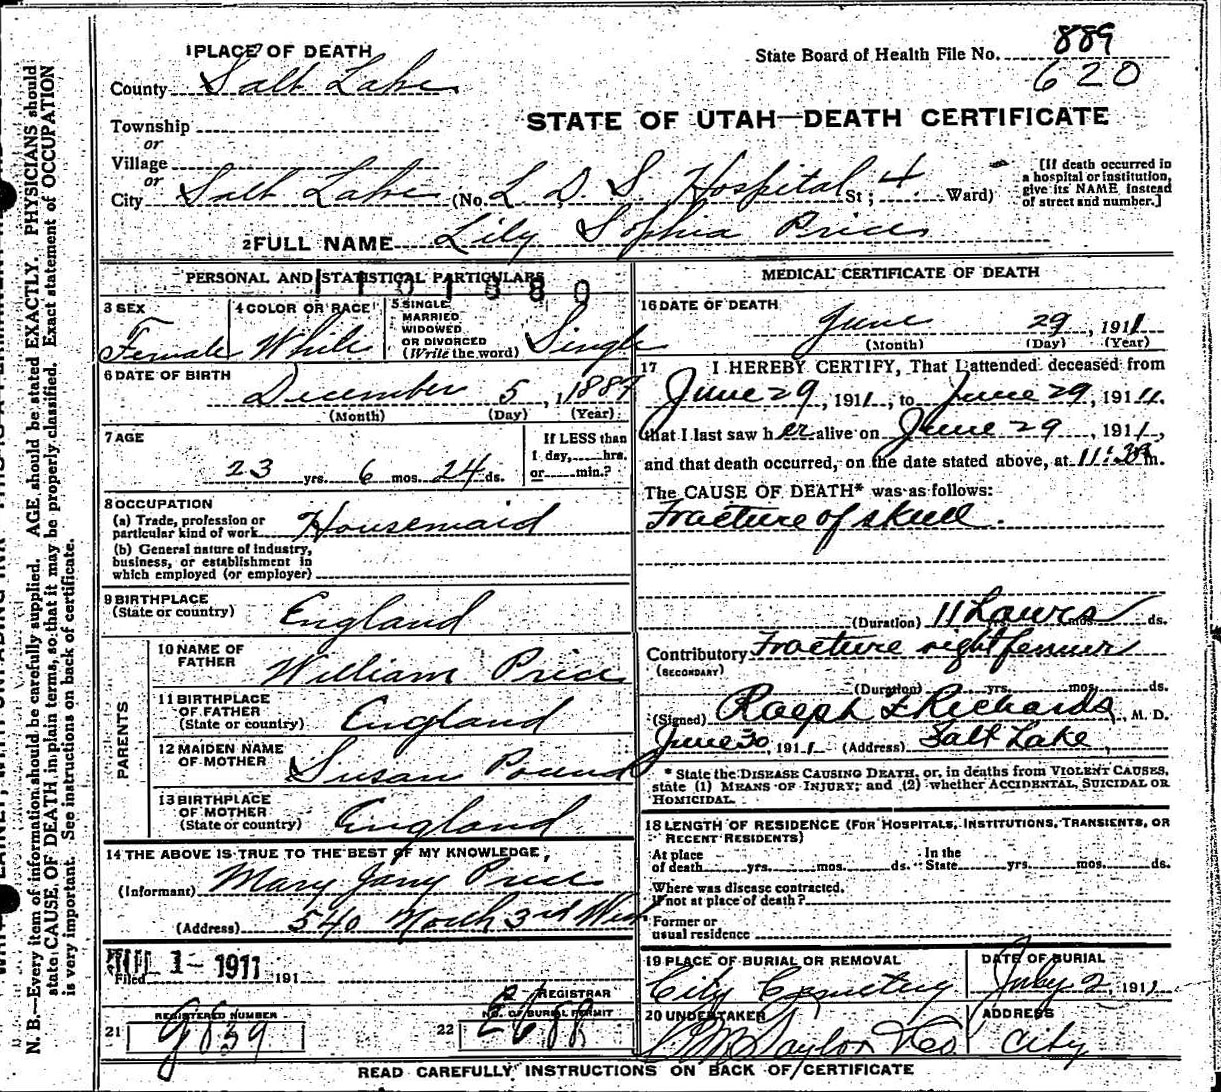 1 PLACE OF DEATH
State Board of Health File No. 889
620
County Salt Lake
STATE OF UTAH—DEATH CERTIFICATE
Township
or
Village
or
City Salt Lake (No. L. D. S. Hospital St; 4. Ward)
[If death occurred in
a hospital or institution,
give its NAME instead
of street and number.]
2 FULL NAME Lily Sophia Price
PERSONAL AND STATISTICAL PARTICULARS
3 SEX
Female
4 COLOR OR RACE
White
5 SINGLE
MARRIED
WIDOWED
OR DIVORCED
(Write the word) Single
6 DATE OF BIRTH
December 5, 1887
(Month) (Day) (Year)
7 AGE
23 yrs. 6 mos. 24 ds.
If LESS than
1 day, hrs.
or min.?
8 OCCUPATION
(a) Trade, profession or
particular kind of work Housemaid
(b) General nature of industry,
business, or establishment in
which employed (or employer)
9 BIRTHPLACE
(State or country) England
PARENTS
10 NAME OF
FATHER William Price
11 BIRTHPLACE
OF FATHER
(State or country) England
12 MAIDEN NAME
OF MOTHER Susan Pound
13 BIRTHPLACE
OF MOTHER
(State or country) England
14 THE ABOVE IS TRUE TO THE BEST OF MY KNOWLEDGE,
(Informant) Mary Jany Price
(Address) 540 North 3rd West
Filed JUL 1- 1911 191
REGISTRAR
21 REGISTERED NUMBER
g839
22 NO. OF BURIAL PERMIT
E688
MEDICAL CERTIFICATE OF DEATH
16 DATE OF DEATH
June 29, 1911
(Month) (Day) (Year)
17 I HEREBY CERTIFY, That I attended deceased from
June 29, 1911, to June 29, 1911.
that I last saw her alive on June 29, 1911,
and that death occurred, on the date stated above, at 11:30 m.
The CAUSE OF DEATH* was as follows:
Fracture of skull.
(Duration) 11 hours mos. ds.
Contributory Fracture right femur
(SECONDARY)
(Duration) yrs. mos. ds.
(Signed) Ralph T Richards, M. D.
June 30, 1911 (Address) Salt Lake,
* State the DISEASE CAUSING DEATH, or, in deaths from VIOLENT CAUSES,
state (1) MEANS OF INJURY; and (2) whether ACCIDENTAL, SUICIDAL OR
HOMICIDAL.
18 LENGTH OF RESIDENCE (FOR HOSPITALS, INSTITUTIONS, TRANSIENTS, OR
RECENT RESIDENTS)
At place
of death yrs. mos. ds.
In the
State yrs. mos. ds.
Where was disease contracted.
if not at place of death?
Former or
usual residence
19 PLACE OF BURIAL OR REMOVAL
City Cemetery
DATE OF BURIAL
July 2, 1911
20 UNDERTAKER
S M Taylor & Co
ADDRESS
City
READ CAREFULLY INSTRUCTIONS ON BACK OF CERTIFICATE
N. B.—Every item of information should be carefully supplied. AGE should be stated EXACTLY. PHYSICIANS should
state CAUSE OF DEATH in plain terms, so that it may be properly classified. Exact statement of OCCUPATION
is very important. See instructions on back of certificate.